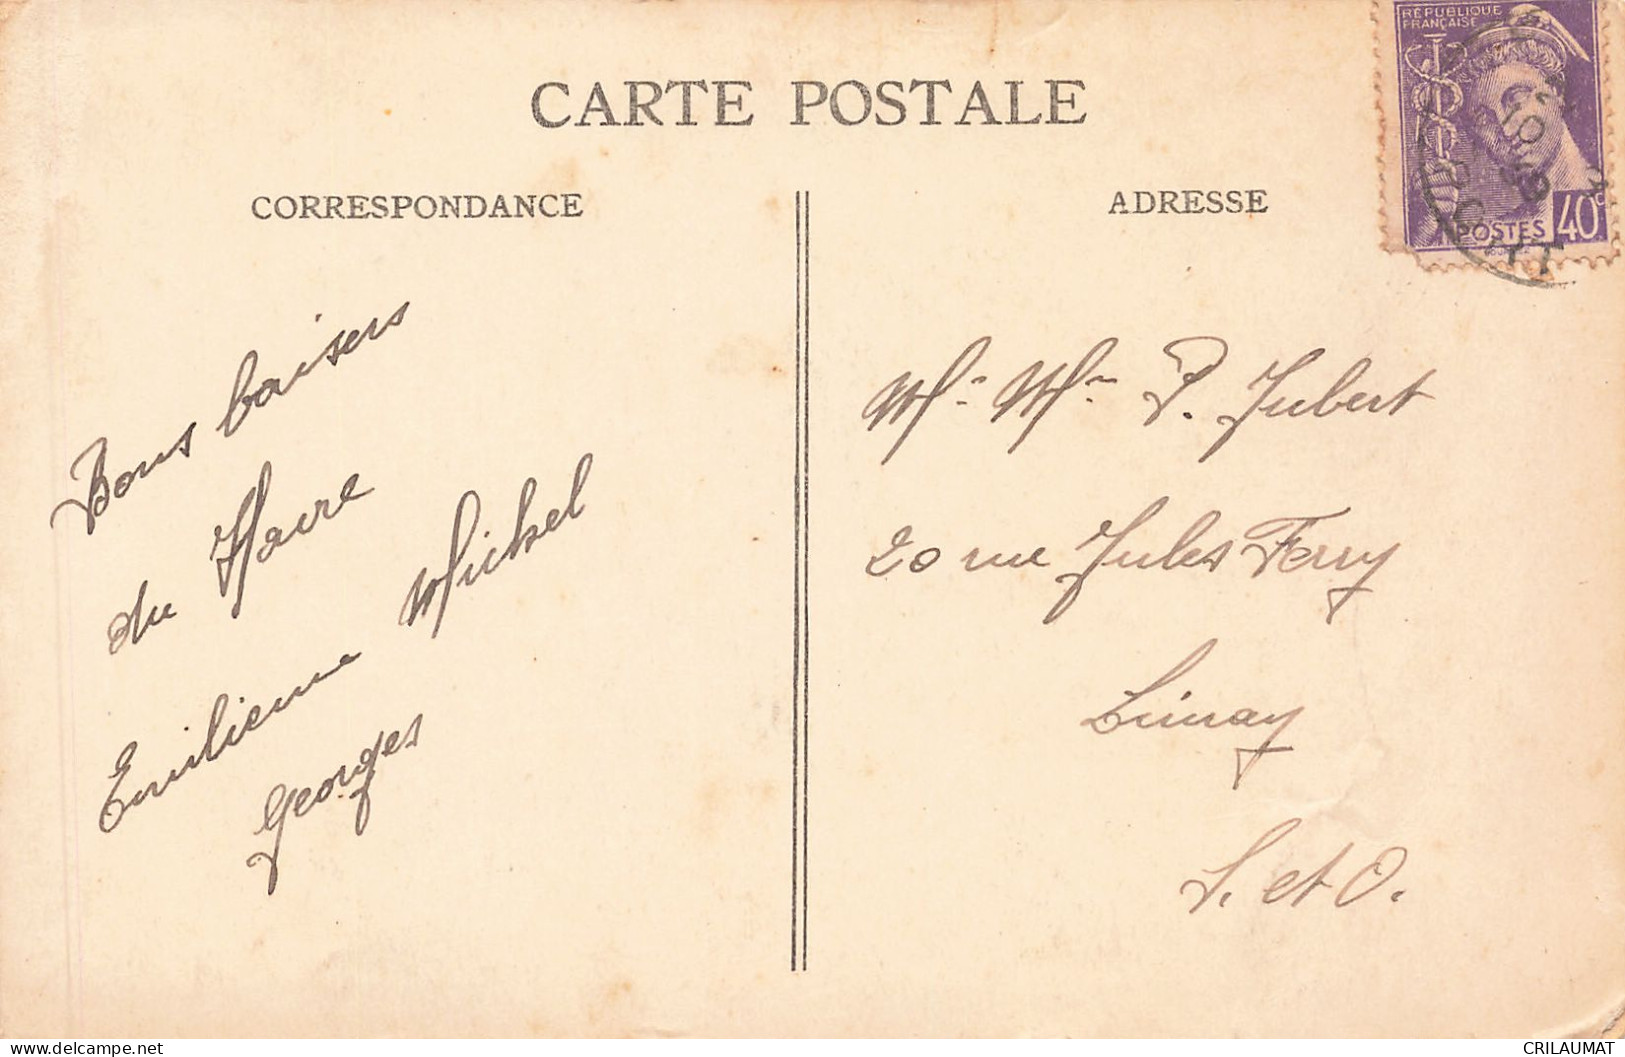 CARTE POSTALE
CORRESPONDANCE
Bons baisers
du Havre
Emilienne Michel
Georges
ADRESSE
RÉPUBLIQUE
FRANÇAISE
POSTES 40c
Mr Mme P. Jubert
20 rue Jules Ferry
Limay
S. et O.
www.delcampe.net
CRILAUMAT